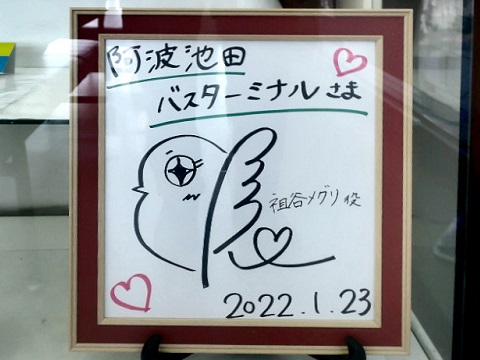 阿波池田
バスターミナルさま
祖谷メグリ役
2022.1.23